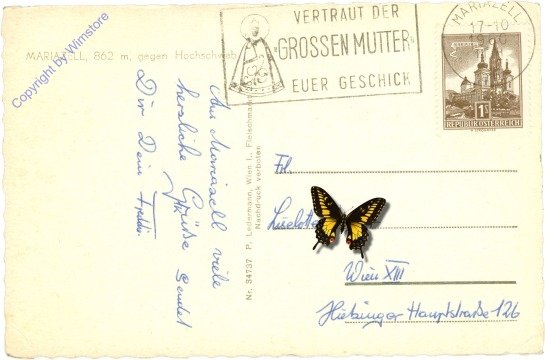 Copyright by Wimstore
MARIAZELL, 862 m, gegen Hochschwab
VERTRAUT DER
„GROSSEN MUTTER"
EUER GESCHICK
MARIAZELL
17-10
1S
REPUBLIK ÖSTERREICH
Aus Mariazell viele
herzliche Grüße sendet
Dir Dein Freddi.
Nr. 34737 P. Ledermann, Wien I., Fleischmarkt
Nachdruck verboten
Frl.
Liselotte
Wien XIII
Hietzinger Hauptstraße 126